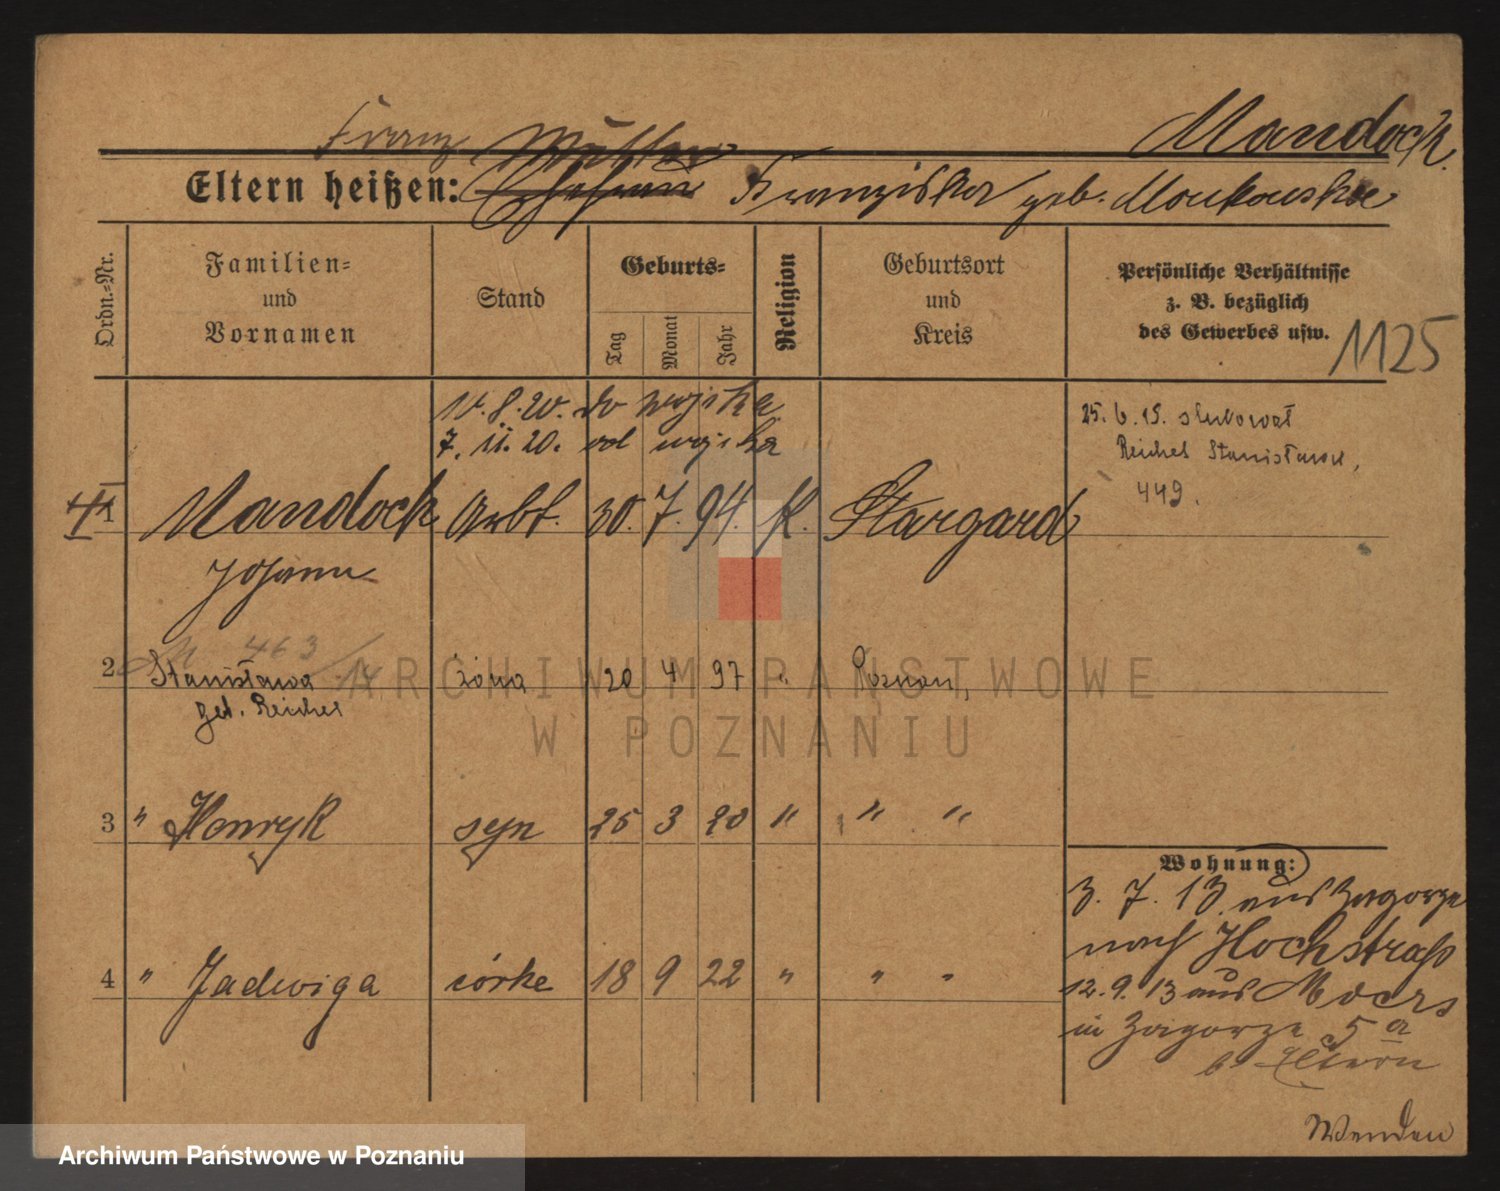 Mandock.
Franz
Eltern heißen: Franziska geb. Monkowska
Ordn.=Nr.
Familien=
und
Vornamen
Stand
Geburts=
Tag
Monat
Jahr
Religion
Geburtsort
und
Kreis
Persönliche Verhältnisse
z. B. bezüglich
des Gewerbes usw.
1125
10. 8. 20. do wojska
7. 11. 20. od wojska
25. 6. 19. ślubował
Reichel Stanisławą,
449.
1 Mandock Arbt. 30. 7. 94. k. Stargard
Johann
463
2 Stanisława żona 20 4 97 " Poznań,
geb. Reichel
3 " Henryk syn 25 3 20 " " "
4 " Jadwiga córka 18 9 22 " " "
Wohnung:
3. 7. 13. aus Zagorze
nach Hochstraß
12. 9. 13 aus Moers
in Zagorze 5a
b Eltern
Wenden
ARCHIWUM PAŃSTWOWE
W POZNANIU
Archiwum Państwowe w Poznaniu